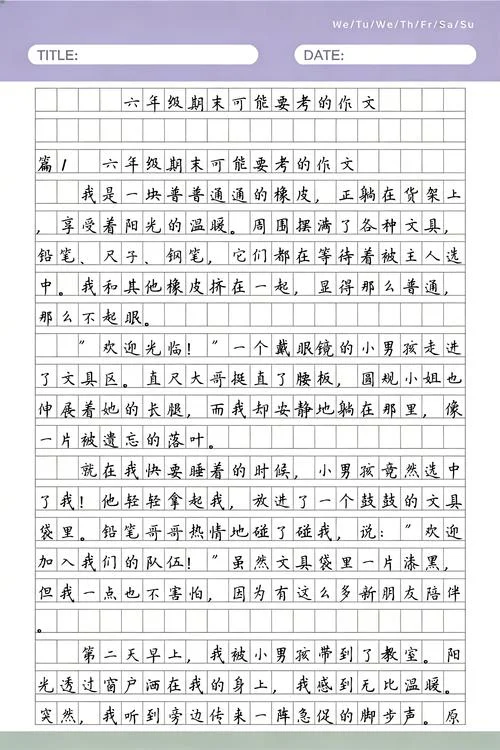 We/Tu/We/Th/Fr/Sa/Su
TITLE:
DATE:
六年级期末可能要考的作文
篇1 六年级期末可能要考的作文
我是一块普普通通的橡皮，正躺在货架上
，享受着阳光的温暖。周围摆满了各种文具，
铅笔、尺子、钢笔，它们都在等待着被主人选
中。我和其他橡皮挤在一起，显得那么普通，
那么不起眼。
"欢迎光临！"一个戴眼镜的小男孩走进
了文具区。直尺大哥挺直了腰板，圆规小姐也
伸展着她的长腿，而我却安静地躺在那里，像
一片被遗忘的落叶。
就在我快要睡着的时候，小男孩竟然选中
了我！他轻轻拿起我，放进了一个鼓鼓的文具
袋里。铅笔哥哥热情地碰了碰我，说："欢迎
加入我们的队伍！"虽然文具袋里一片漆黑，
但我一点也不害怕，因为有这么多新朋友陪伴
。
第二天早上，我被小男孩带到了教室。阳
光透过窗户洒在我的身上，我感到无比温暖。
突然，我听到旁边传来一阵急促的脚步声。原